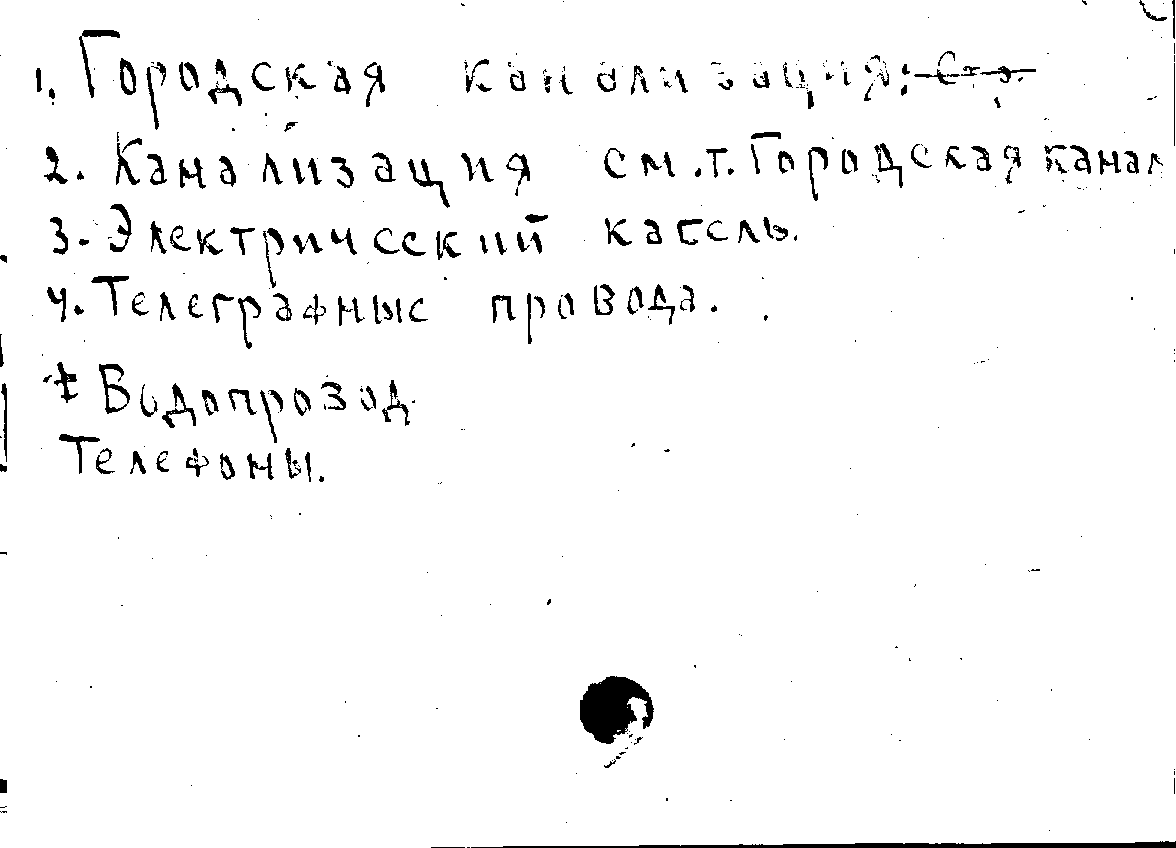 1. Городская канализация;
2. Канализация см. т. Городская канал
3. Электрический кабель.
4. Телеграфные провода.
Водопровод
Телефоны.